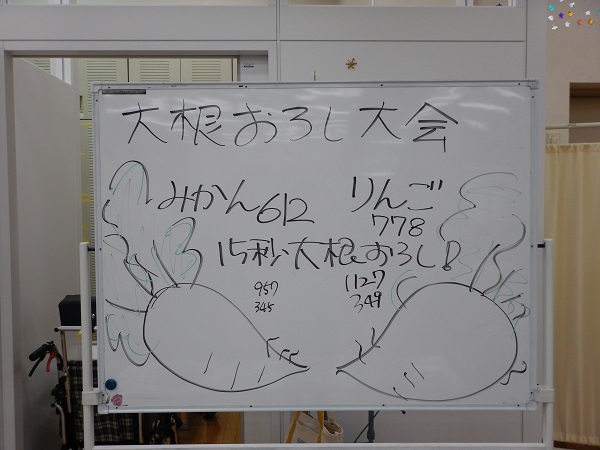 大根おろし大会
みかん612 りんご778
15秒大根おろし!
957 1127
345 349